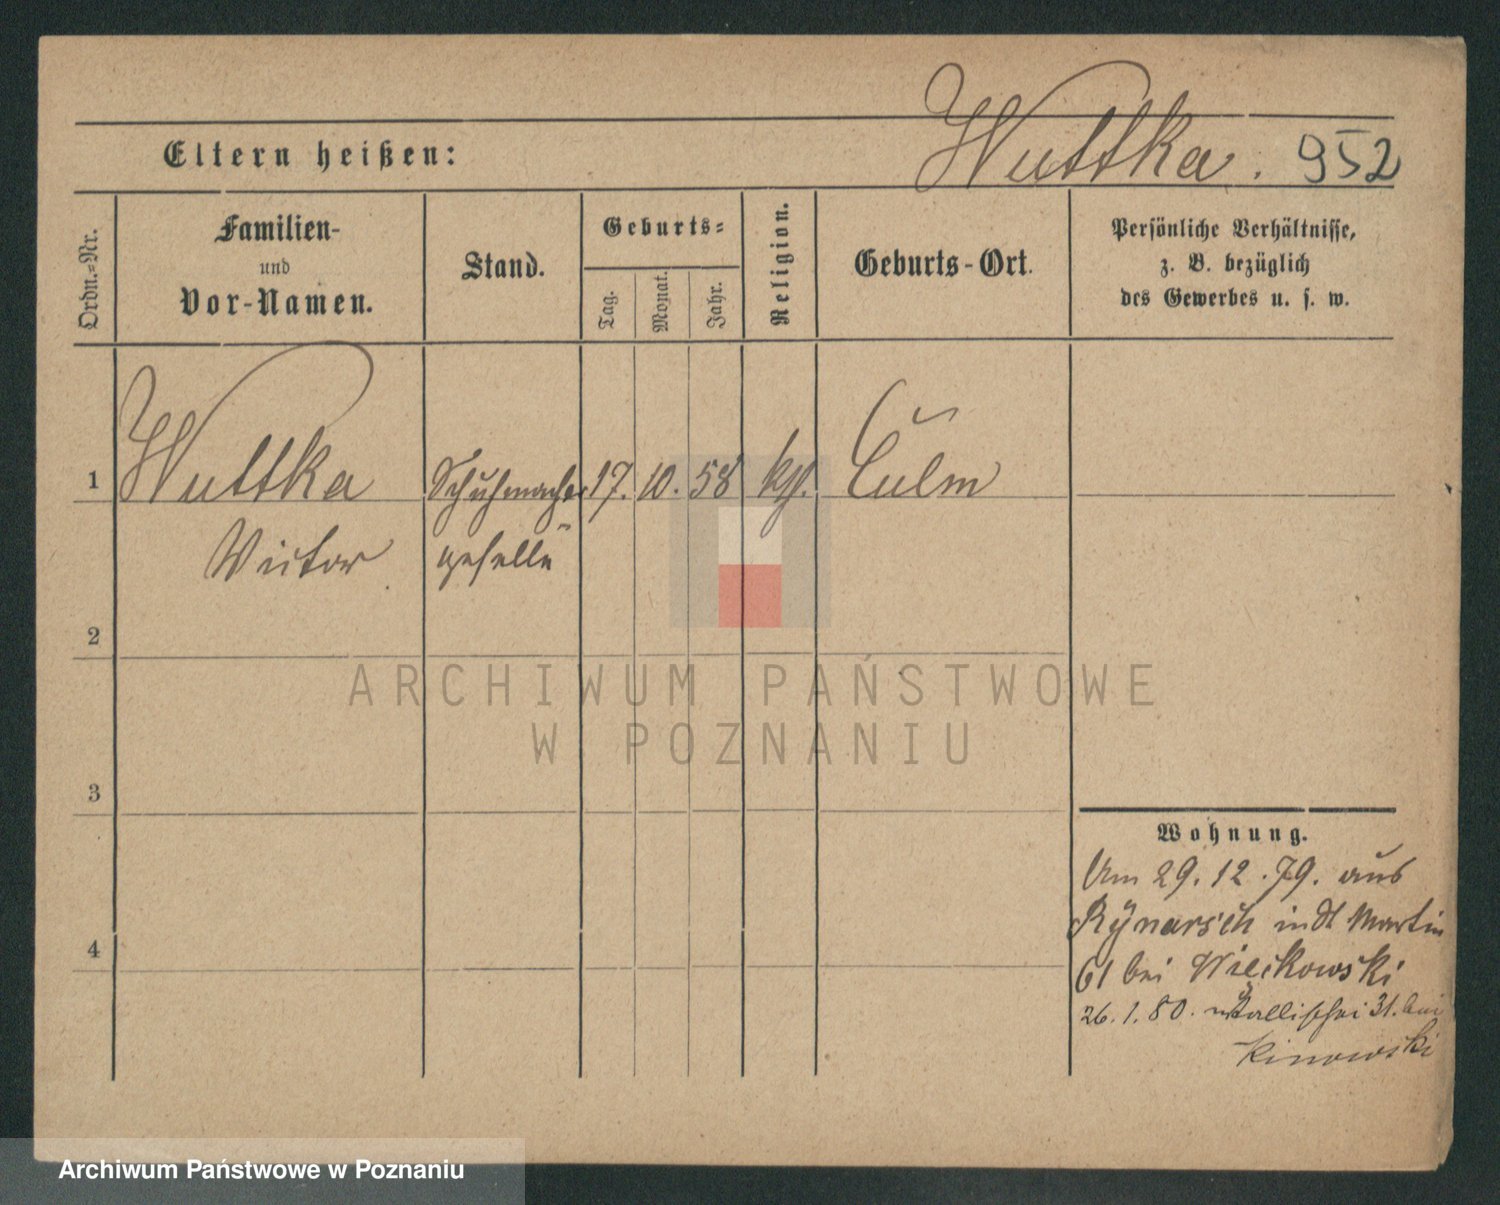 Wuttka. 952
Eltern heißen:
Ordn.-Nr.
Familien-
und
Vor-Namen.
Stand.
Geburts-
Tag.
Monat.
Jahr.
Religion.
Geburts-Ort.
Persönliche Verhältnisse,
z. B. bezüglich
des Gewerbes u. s. w.
1 Wuttka Schuhmacher 17. 10. 58 Culm
Victor geselle
2
3
4
Wohnung.
29. 12. 79. aus
Rynarsch in St Martin
61 bei Wilckowski
26. 1. 80. 31. bei
Kinowski
ARCHIWUM PAŃSTWOWE
W POZNANIU
Archiwum Państwowe w Poznaniu